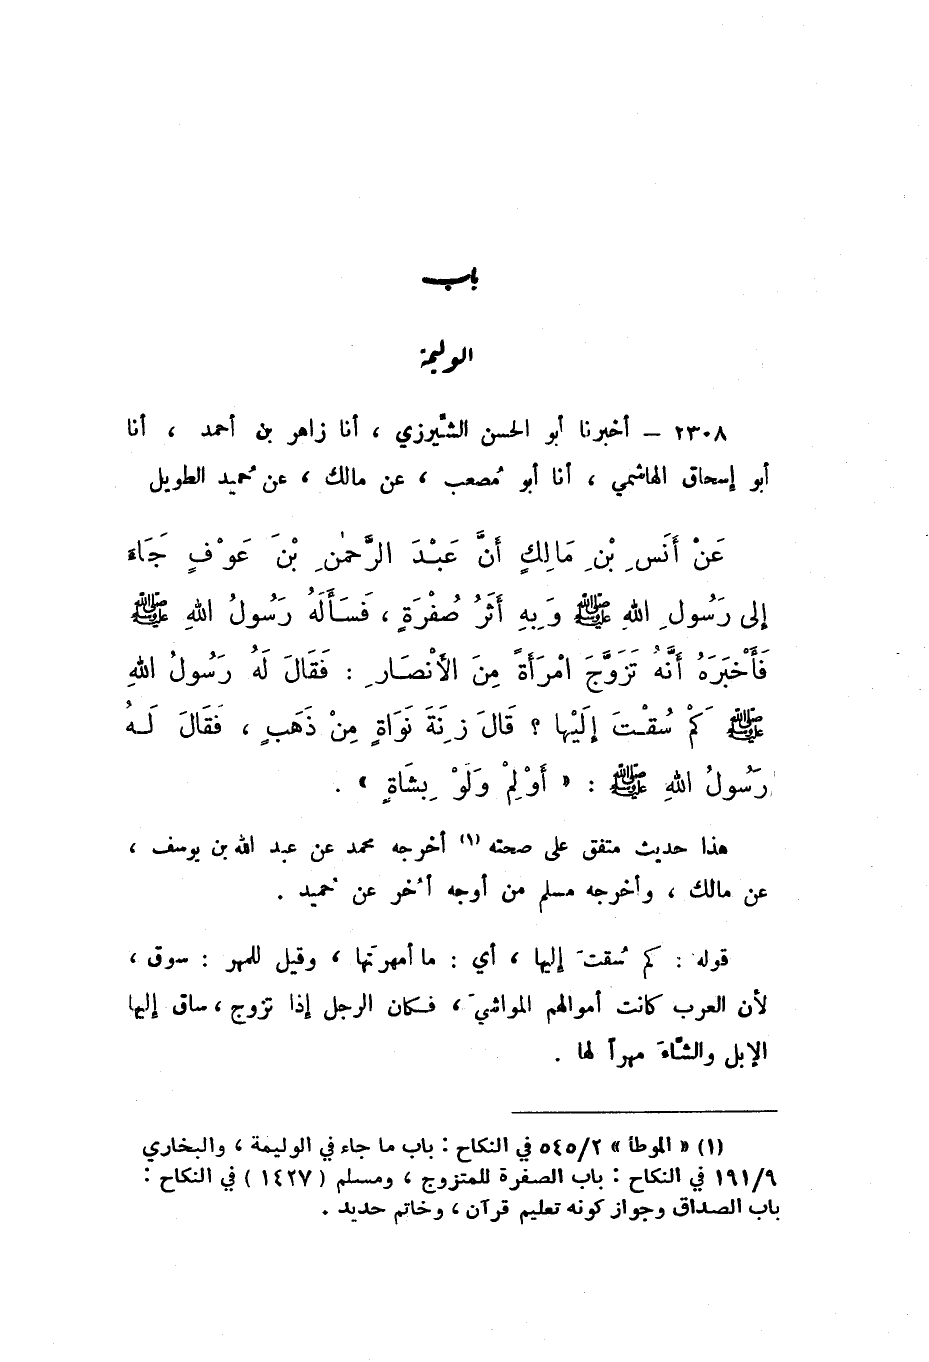 باب
الوليمة
٢٣٠٨ – أخبرنا أبو الحسن الشَّيرزي ، أنا زاهر بن أحمد ، أنا
أبو إسحاق الهاشمي ، أنا أبو مُصعب ، عن مالك ، عن حُميد الطويل
عَنْ أَنَسِ بْنِ مَالِكٍ أَنَّ عَبْدَ الرَّحْمٰنِ بْنَ عَوْفٍ جَاءَ
إلى رَسُولِ اللهِ ﷺ وَبِهِ أَثَرُ صُفْرَةٍ ، فَسَأَلَهُ رَسُولُ اللهِ ﷺ
فَأَخْبَرَهُ أَنَّهُ تَزَوَّجَ امْرَأَةً مِنَ الأَنْصَارِ : فَقَالَ لَهُ رَسُولُ اللهِ
ﷺ كَمْ سُقْتَ إِلَيْها ؟ قَالَ زِنَةَ نَوَاةٍ مِنْ ذَهَبٍ ، فَقَالَ لَهُ
رَسُولُ اللهِ ﷺ : « أَوْلِمْ وَلَوْ بِشَاةٍ » .
هذا حديث متفق على صحته (١) أخرجه محمد عن عبد الله بن يوسف ،
عن مالك ، وأخرجه مسلم من أوجه أُخر عن حُميد .
قوله : كم سُقتَ إليها ، أي : ما أمهرتَها ، وقيل للمهر : سوق ،
لأن العرب كانت أموالهم المواشيَ ، فكان الرجل إذا تزوج ، ساق إليها
الإبل والشَّاءَ مهراً لها .
(١) « الموطأ » ٥٤٥/٢ في النكاح : باب ما جاء في الوليمة ، والبخاري
١٩١/٩ في النكاح : باب الصفرة للمتزوج ، ومسلم ( ١٤٢٧ ) في النكاح :
باب الصداق وجواز كونه تعليم قرآن ، وخاتم حديد .